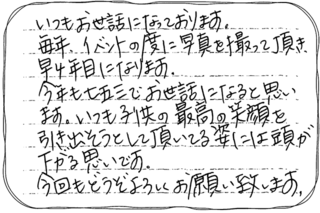 いつもお世話になっております。
毎年、イベントの度に写真を撮って頂き
早4年目になります。
今年も七五三でお世話になると思い
ます。いつも子供の最高の笑顔を
引き出そうとして頂いてる姿には頭が
下がる思いです。
今回もどうぞよろしくお願い致します。